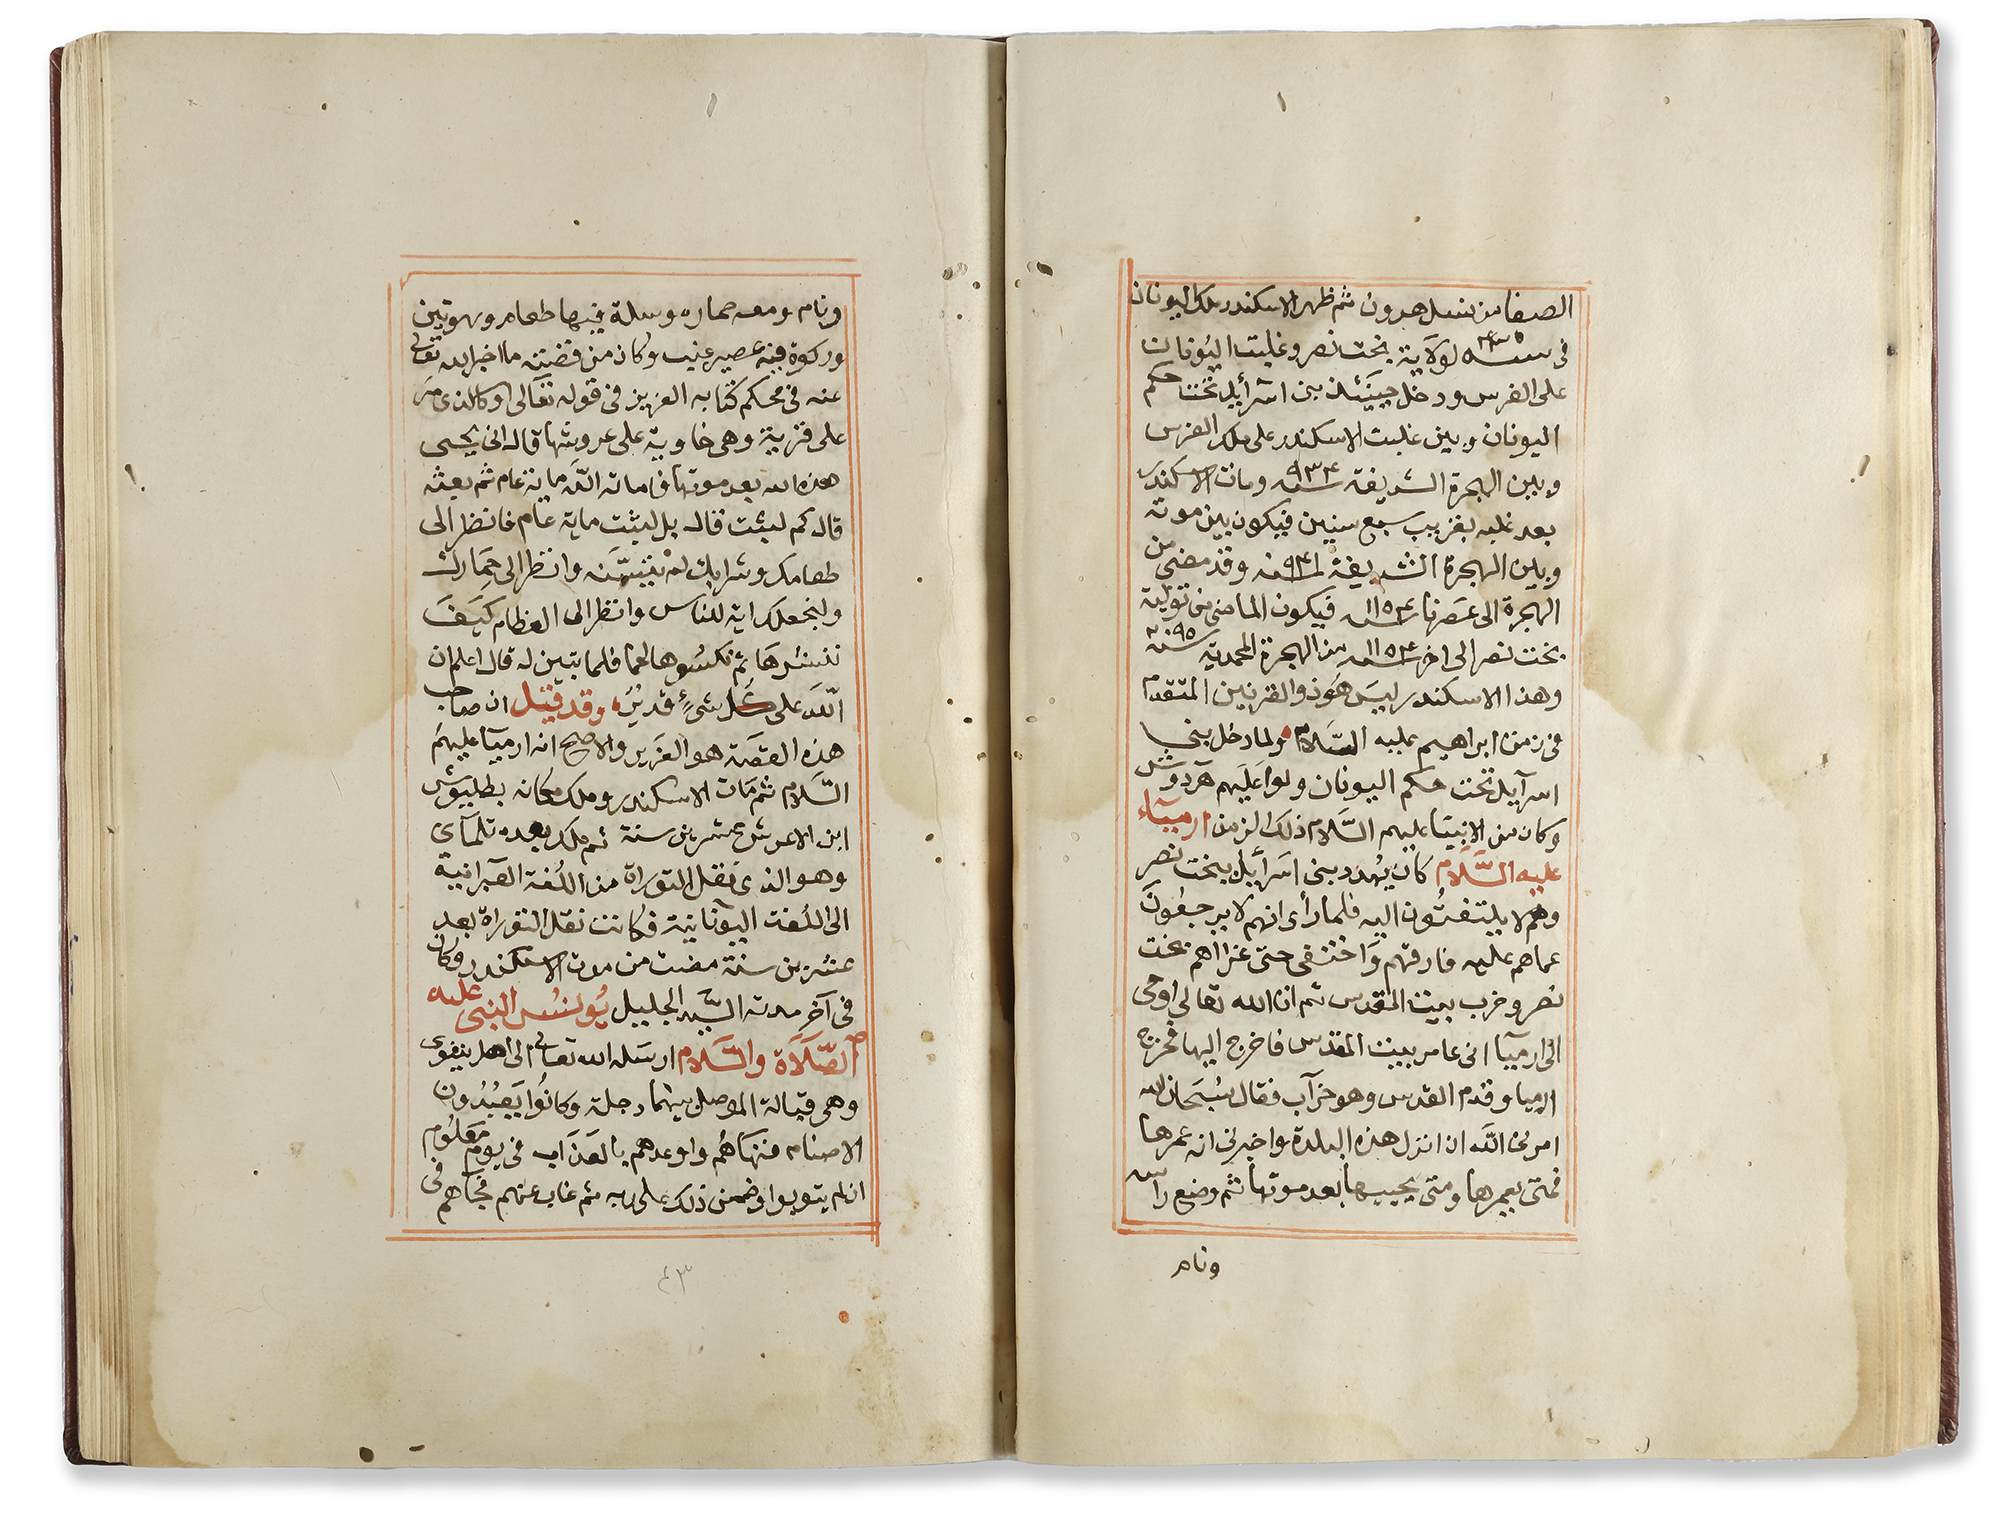 الصفا من نسل هرون ثم ظهر الاسكندر ملك اليونان
فى سنه ٤٣٥ لولاية بخت نصر وغلبت اليونان
على الفرس ودخل حينئذ بنى اسرآيل تحت حكم
اليونان وبين غلبت الاسكندر على ملك الفرس
وبين الهجرة الشريفة ٩٣٤ سنه ومات الاسكندر
بعد غلبه بقريب سبع سنين فيكون بين موته
وبين الهجرة الشريفة ٩٤١ سنه وقد مضى من
الهجرة الى عصرنا ١١٥٤ سنه فيكون الماضى من تولية
بخت نصر الى اخر ١١٥٤ سنه من الهجرة المحمدية سنه ٢٠٩٥
وهذا الاسكندر ليس هو ذو القرنين المتقدم
فى زمن ابراهيم عليه السلام ولما دخل بنى
اسرآيل تحت حكم اليونان ولوا عليهم هردوش
وكان من الانبيا عليهم السلام ذلك الزمن ارمياء
عليه السلام كان يهدد بنى اسرآيل ببخت نصر
وهم لا يلتفتون اليه فلما رأى انهم لا يرجعون
عماهم عليه فارقهم واختفى حتى غزاهم بخت
نصر وخرب بيت المقدس ثم ان الله تعالى اوحى
الى ارميا انى عامر ببيت المقدس فاخرج اليها فخرج
ارميا وقدم القدس وهو خرآب فقال سبحان الله
امرنى الله ان انزل هذه البلدة واخبرنى انه عمرها
فمتى يعمرها ومتى يحييها بعد موتها ثم وضع راسه
ونام
ونام ومعه حماره وسلة فيها طعام وهو تين
وركوة فيه عصير عنب وكان من قصته ما اخبر الله تعالى
عنه فى محكم كتابه العزيز فى قوله تعالى او كالذى مر
على قرية وهى خاوية على عروشها قال انى يحيى
هذه الله بعد موتها فاماته الله ماية عام ثم بعثه
قال كم لبثت قال بل لبثت ماية عام فانظر الى
طعامك وشرابك لم يتسنه وانظر الى حمارك
ولنجعلك اية للناس وانظر الى العظام كيف
ننشزها ثم نكسوها لحما فلما تبين له قال اعلم ان
الله على كل شىء قدير وقد قيل ان صاحب
هذه القصة هو العزير والاصح انه ارميا عليهم
السلام ثم مات الاسكندر وملك مكانه بطليوش
ابن الاعرش عشرين سنة ثم ملك بعده تلماى
وهو الذى نقل التوراة من اللغة العبرانية
الى اللغت اليونانية فكانت نقل التوراة بعد
عشرين سنة مضت من موت الاسكندر وكان
فى آخر مدته السيد الجليل يونس النبى عليه
الصلاة والسلام ارسله الله تعالى الى اهل نينوى
وهى قبالة الموصل بينهما دجلة وكانوا يعبدون
الاصنام فنهاهم واوعدهم بالعذاب فى يوم معلوم
ان لم يتوبوا وضمن ذلك على ربه ثم غاب عنهم فجاهم فى
٤٣